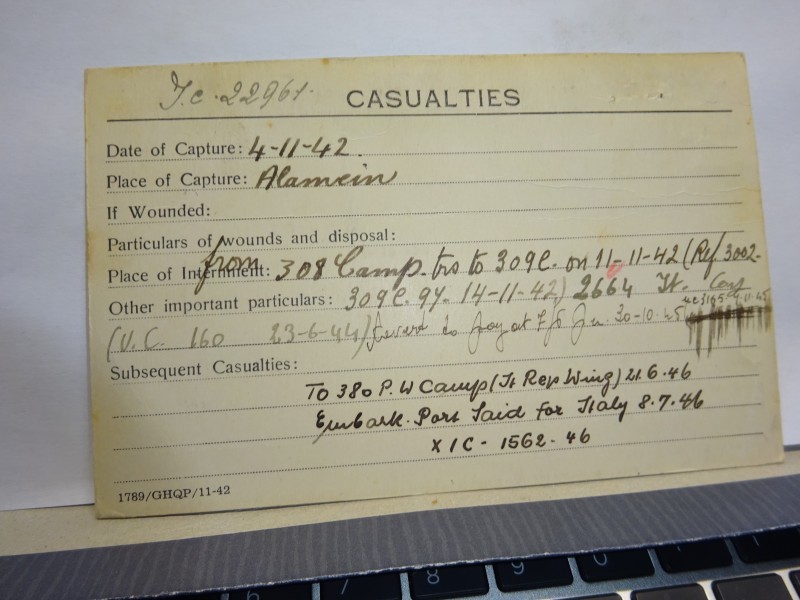 T.c. 22961.
CASUALTIES
Date of Capture: 4-11-42.
Place of Capture: Alamein
If Wounded:
Particulars of wounds and disposal:
Place of Internment: from 308 Camp. trs to 309C. on 11-11-42 (Ref 3002-
Other important particulars: 309C. 94. 14-11-42) 2664 It. Coy
(U.C. 160 23-6-44) to pay at 30-10-45
Subsequent Casualties:
To 380 P.W Camp (It Rep Wing) 21.6.46
Embark. Port Said for Italy 8.7.46
X I C - 1562 - 46
1789/GHQP/11-42
6 7 8 9 0